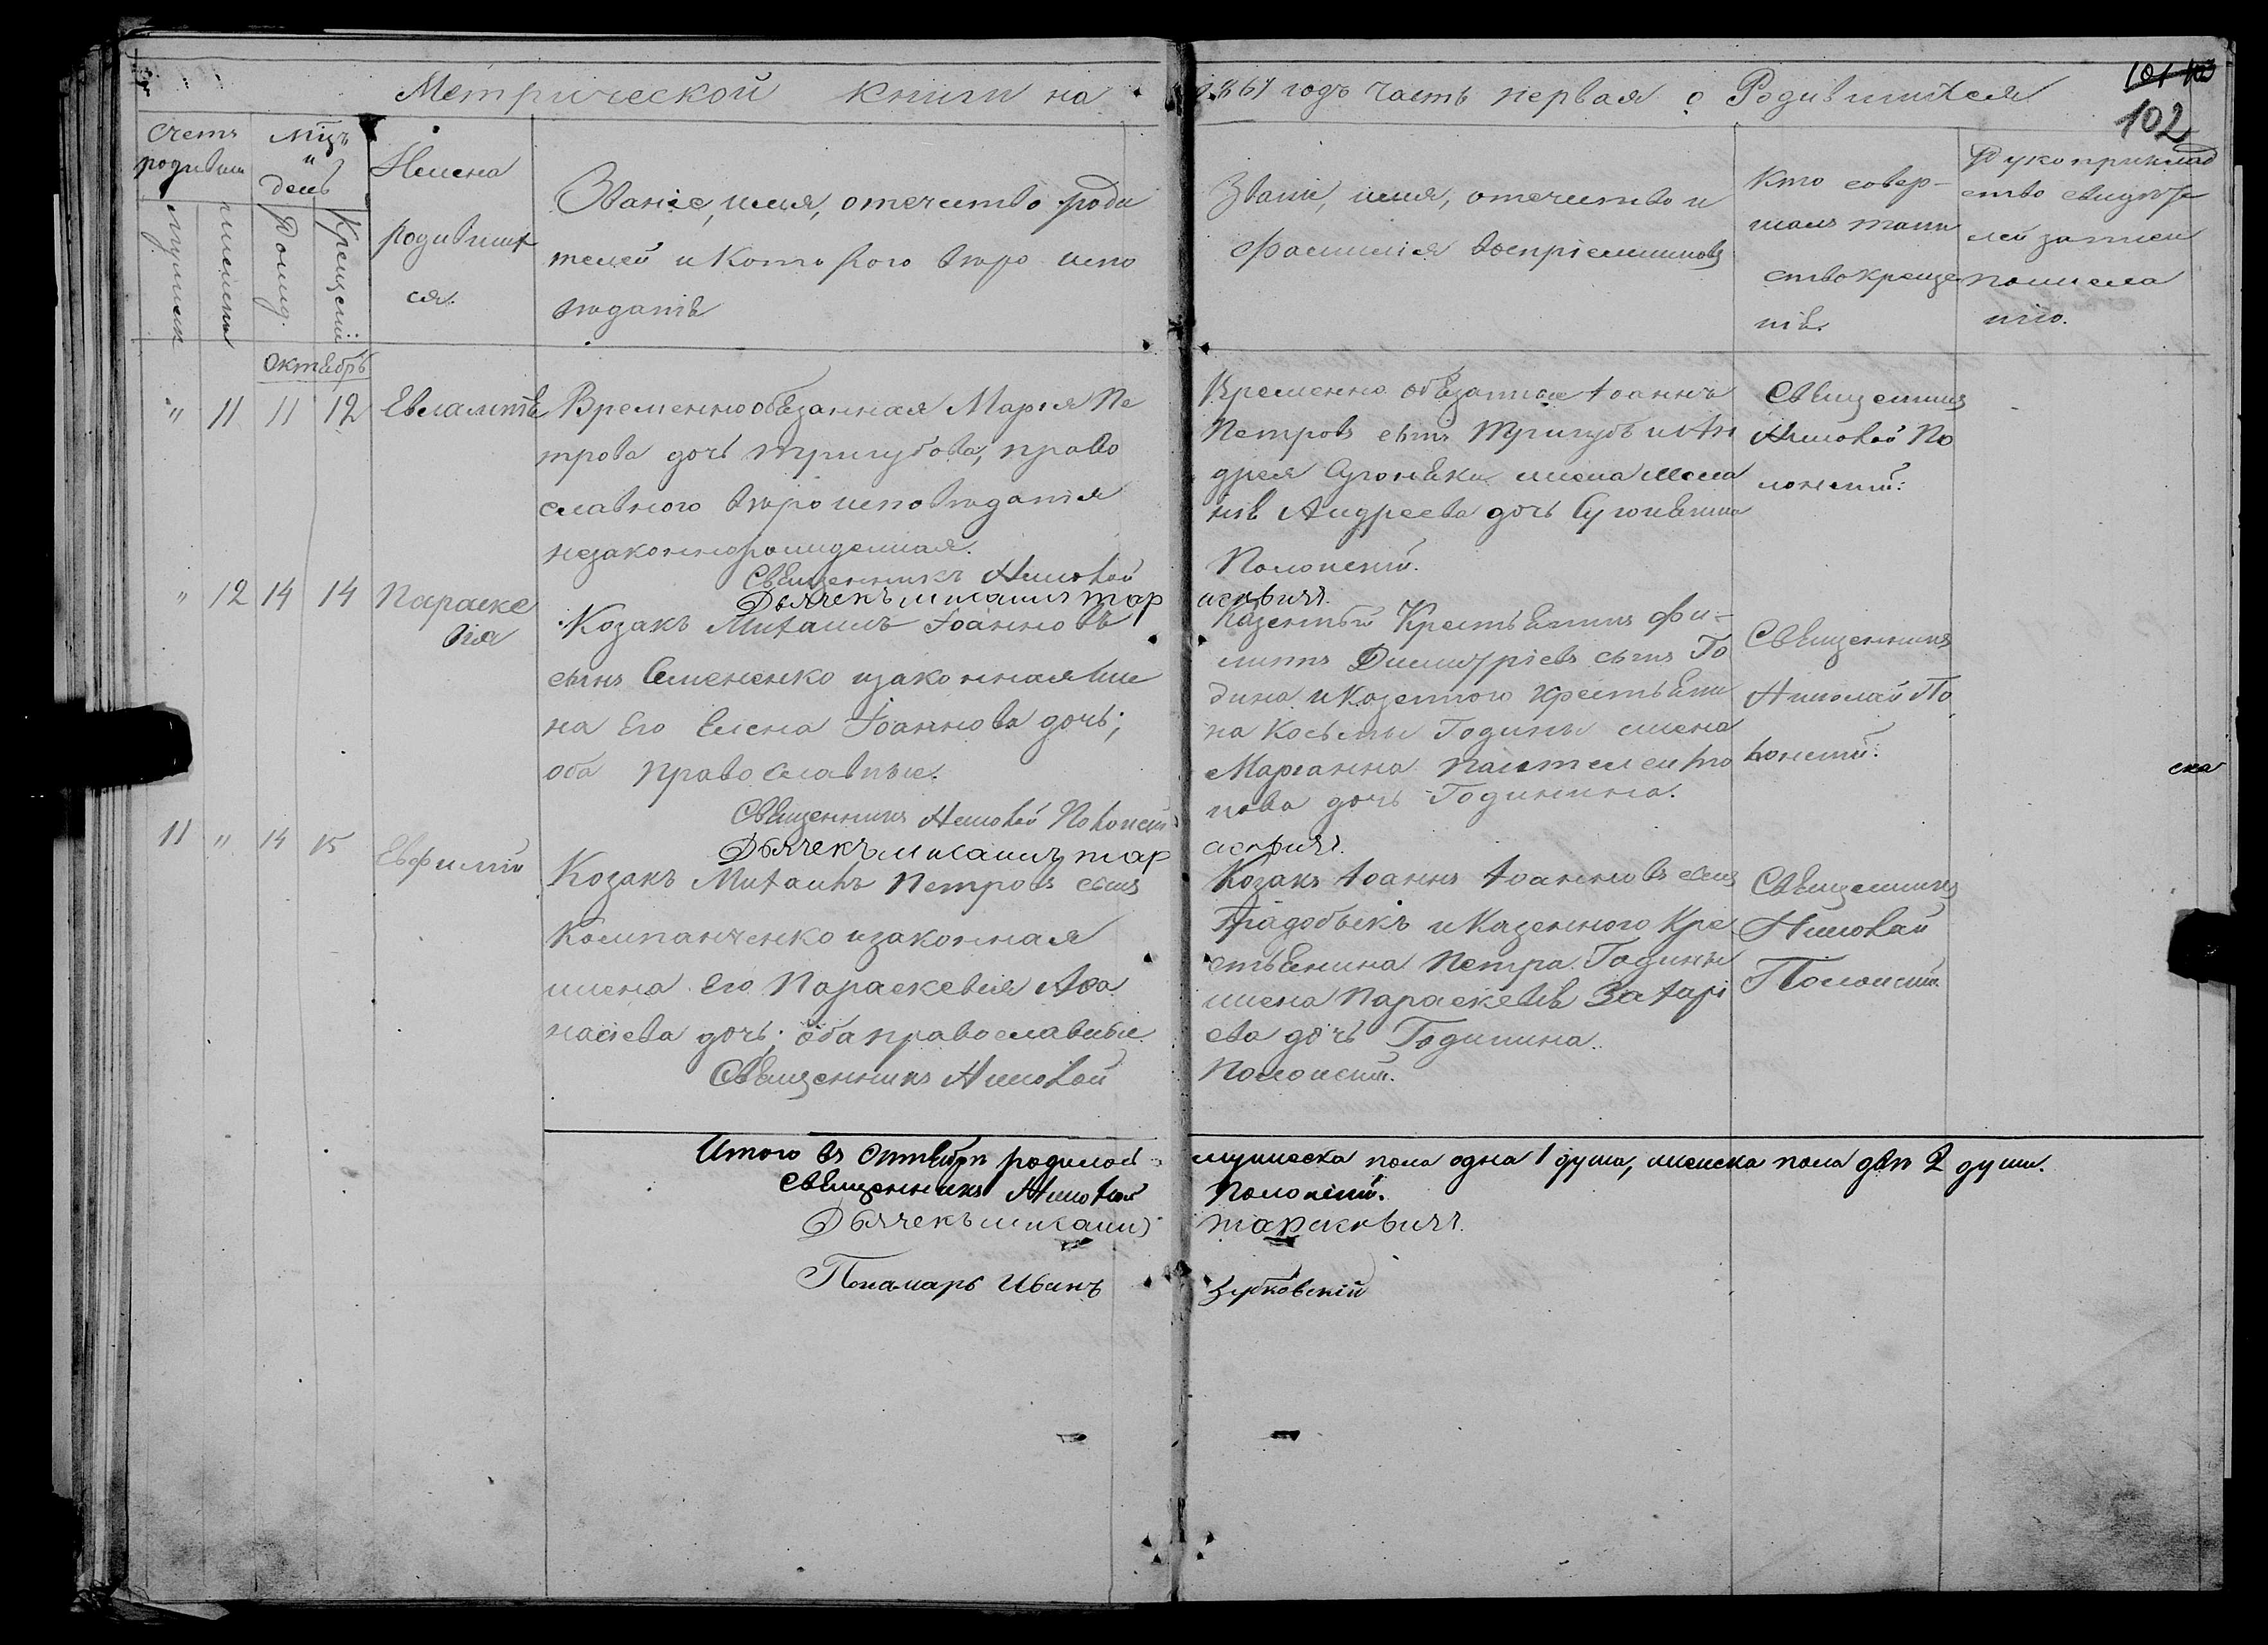 Метрической книги на 1861 годъ часть первая о Родившихся
101 103
102
Счетъ родивш
Мцъ и день
мужеск
женска
Рожд.
Крещенія
Имена
родивших
ся.
Званіе, имя, отечество роди
телей и которого вѣро испо
вѣданія
Званіе, имя, отечество и
фамилія воспріемниковъ
Кто совер-
шалъ таин
ство креще
нія.
Рукоприклад
ство свидѣте
лей записи
по желанію.
Октябрь
" 11 11 12 Евлампія
Временно обязанная Марія Пе
трова дочь Тригубова, право
славного вѣро исповѣданія
незаконнорожденная.
Священникъ Николай
Дьячекъ Михаилъ Тар
Временно обязанные Іоаннъ
Петровъ сынъ Тригубъ и Ан
дрея жена
Андреева дочь
Полонскій.
асквичъ.
Священникъ
Николай По
лонскій.
" 12 14 14 Параске
вія
Козакъ Михаилъ Іоанновъ
сынъ Семененко и законная же
на Его Елена Іоаннова дочь;
оба православные.
Священникъ Николай Полонскій
Дьячекъ Михаилъ Тар
Казенный Крестьянинъ Фи-
липъ Димитріевъ сынъ Го
дина и козенного крестьяни
на Косьмы Годины жена
Маріанна Пантелеимо
нова дочь Годинина.
асквичъ.
Священникъ
Николай По
лонскій.
ска
11 " 14 15 Евфимій
Козакъ Михаилъ Петровъ сынъ
Компанченко и законная
жена Его Параскевія Афа
насіева дочь; оба православные.
Священникъ Николай
Козакъ Іоаннъ Іоанновъ сынъ
и Казенного Кре
стьянина Петра Годины
жена Параскевія Захарі
ева дочь Годинина.
Полонскій.
Священникъ
Николай
Полонскій
Итого въ Октябрѣ родилось мужеска пола одна 1 душа, женска пола двѣ 2 души.
Священникъ Николай Полонскій.
Дьячекъ Михаилъ Тарасквичъ.
Понамарь Иванъ Зубковскій